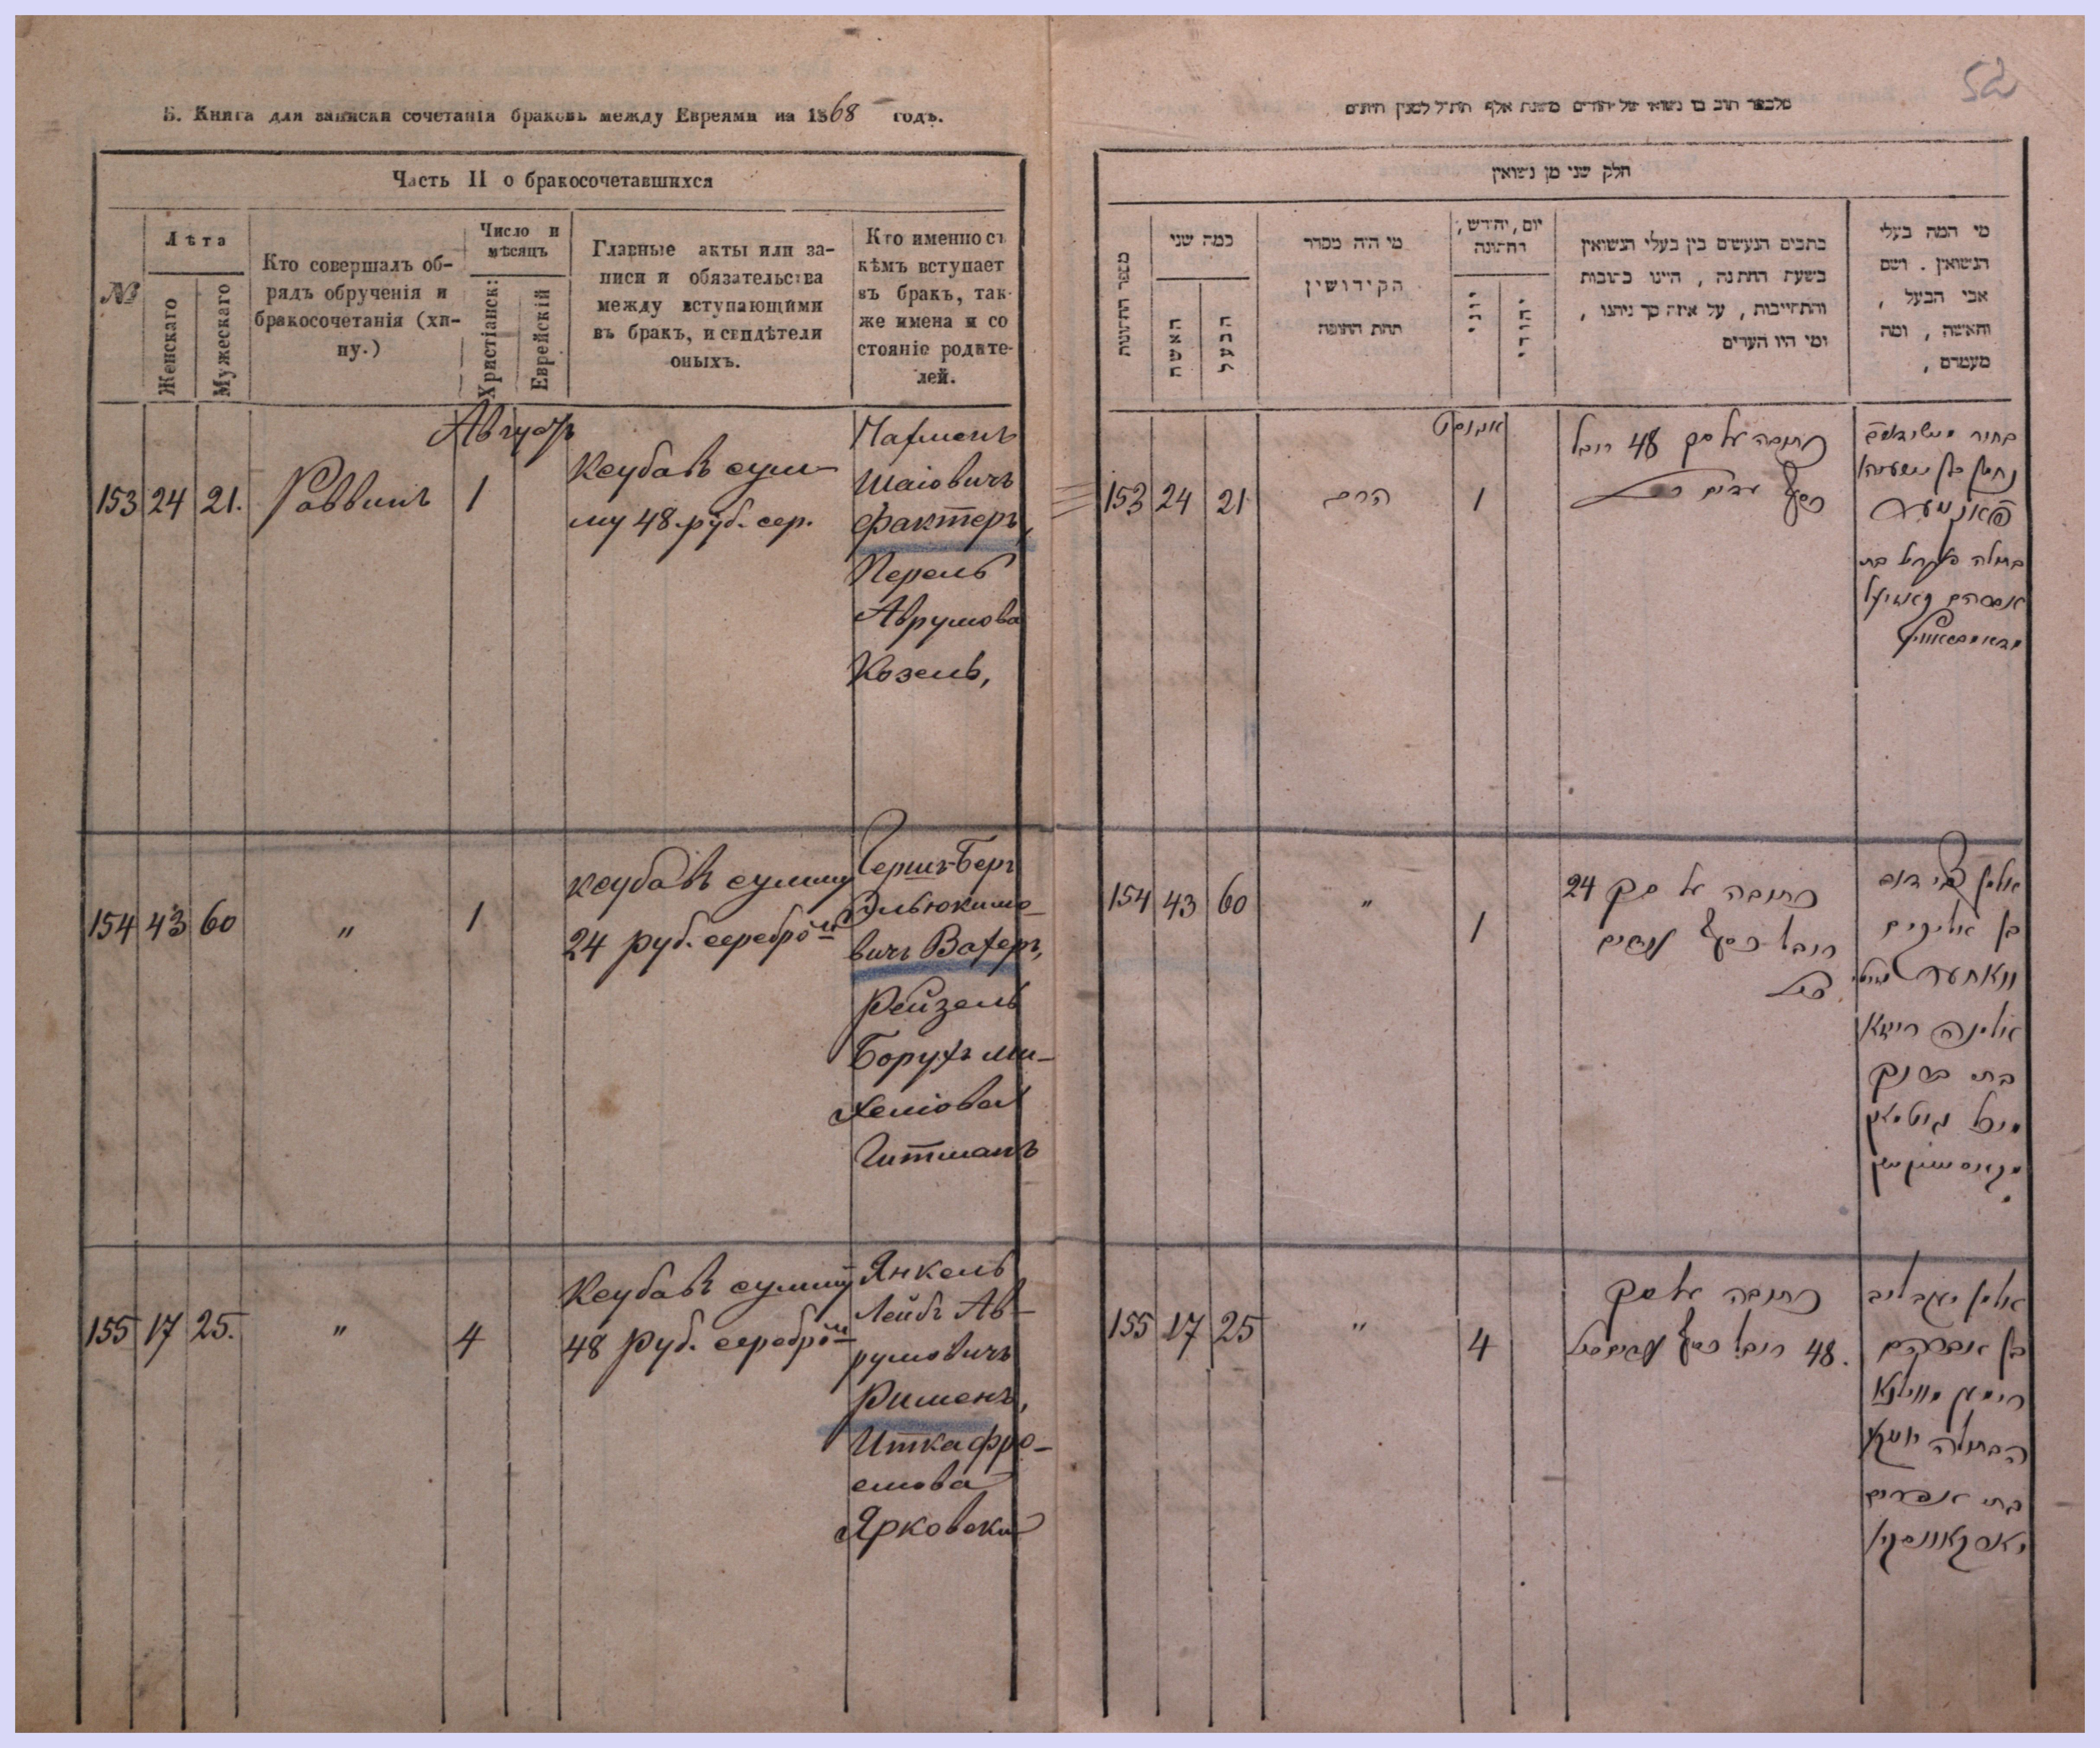 52
Б. Книга для записки сочетанія браковъ между Евреями на 1868 годъ.
Часть II о бракосочетавшихся
№
Лѣта
Женскаго
Мужескаго
Кто совершалъ об-
рядъ обрученія и
бракосочетанія (хи-
пу.)
Число и
мѣсяцъ
Христіанск:
Еврейскій
Главные акты или за-
писи и обязательства
между вступающими
въ бракъ, и свидѣтели
оныхъ.
Кто именно съ
кѣмъ вступает
въ бракъ, так-
же имена и со
стояніе родите-
лей.
Августъ
153 24 21. Раввинъ 1
Ксуба въ сум-
му 48 руб. сер.
Нахманъ
Шаіовичъ
Фактеръ,
Перель
Аврумова
Козель,
154 43 60 " 1
Ксуба въ сумму
24 руб. серебромъ
Гершъ-Беръ
Эльюкимо-
вичъ Вахеръ,
Рейзель
Борухъ Ми-
хеліова
Гитманъ
155 17 25. " 4
Ксуба въ сумму
48 руб. серебромъ
Янкель
Лейбъ Ав-
румовичъ
Рименъ,
Итка Фро-
емова
Ярковски
חלק שני מן נשואין
מספר החתונות
כמה שני
האשה
הבעל
מי היה מסדר
הקידושין
תחת החופה
יום, יחודש,
חתונה
יוני
יהודי
כתבים הנעשים בין בעלי הנשואין
בשעת החתנה, היינו כתובות
והתחייבות, על איזה סך ניתנו,
ומי היו העדים
מי המה בעלי
הנשואין. ושם
אבי הבעל,
והאשה, ומה
מעמדם,
אוגוסט
153 24 21 הרב 1
כתובה על סך 48 רובל
כסף
נחמן בן ישעיה
פאקטער
בתולה פערל בת
אברהם קאזיעל
154 43 60 " 1
כתובה על סך 24
רובל כסף
בן אליקים
וואחער
אלמנה רייזא
בת ברוך
מיכל גיטמאן
155 17 25 " 4
כתובה על סך
48 רובל כסף
אלמן יעקב ליב
בן אברהם
רימען
הבתולה יוטקע
בת אפרים
יארקאווסקי